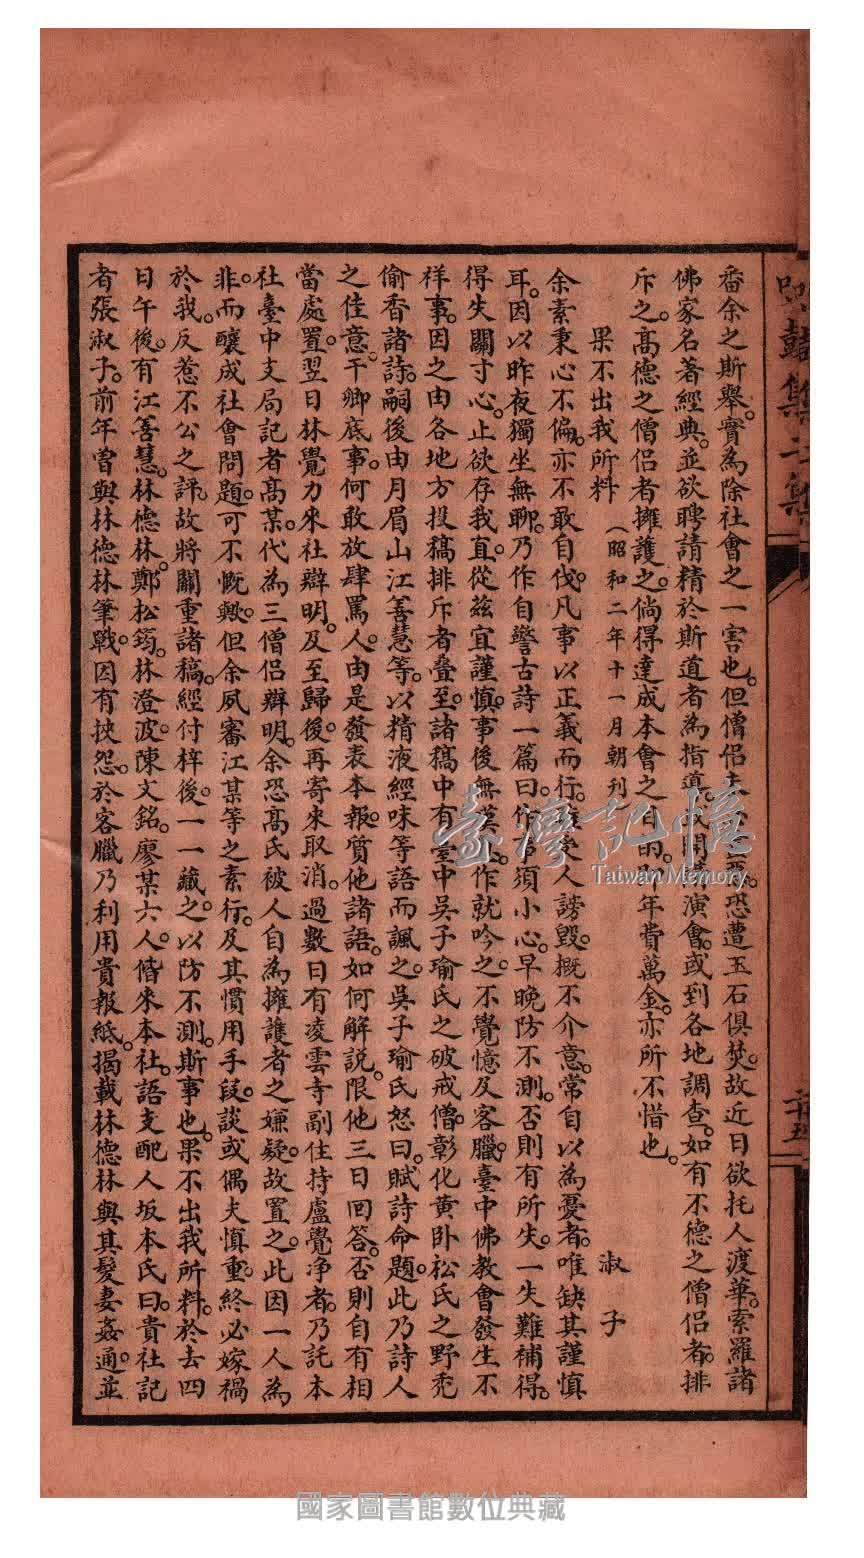 番余之斯舉。實為除社會之一害也。但僧侶夫恐遭玉石俱焚。故近日欲托人渡華。索羅諸
佛家名著經典。並欲聘請精於斯道者為指導。演會。或到各地調查。如有不德之僧侶者。排
斥之。高德之僧侶者擁護之。倘得達成本會之目的。即年費萬金。亦所不惜也。
果不出我所料 (昭和二年十一月朝刊 淑子
余素秉心不偏。亦不敢自伐。凡事以正義而行。雖受人謗毀。概不介意。常自以為憂者。唯缺其謹慎
耳。因以昨夜獨坐無聊。乃作自警古詩一篇曰。作事須小心。早晚防不測。否則有所失。一失難補得。
得失關寸心。止欲存我直。從茲宜謹慎。事後無莫。作就吟之。不覺憶及客臘。臺中佛教會發生不
祥事。因之由各地方投稿排斥者叠至。諸稿中有臺中吳子瑜氏之破戒僧。彰化黄卧松氏之野禿
偷香諸詩。嗣後由月眉山江善慧等。以精液經味等語而諷之。吳子瑜氏怒曰。賦詩命題。此乃詩人
之佳意。干卿底事。何敢放肆罵人。由是發表本報。質他諸語。如何解說。限他三日回答。否則自有相
當處置。翌日林覺力來社辯明。及至歸後。再寄來取消。過數日有凌雲寺副住持盧覺净者。乃託本
社臺中支局記者高某。代為三僧侶辯明。余恐高氏被人自為擁護者之嫌疑。故置之。此因一人為
非。而釀成社會問題。可不慨歟。但余夙審江某等之素行。及其慣用手段。談或偶夫慎重。終必嫁禍
於我。反惹不公之評。故將關重諸稿。經付梓後。一一藏之。以防不測。斯事也。果不出我所料。於去四
日午後。有江善慧。林德林。鄭松筠。林澄波。陳文銘。廖某六人。偕來本社。語支配人坂本氏曰。貴社記
者張淑子。前年曾與林德林筆戰。因有挾怨。於客臘乃利用貴報紙。揭載林德林與其髮妻姦通。並
臺灣記憶
Taiwan Memory
國家圖書館數位典藏